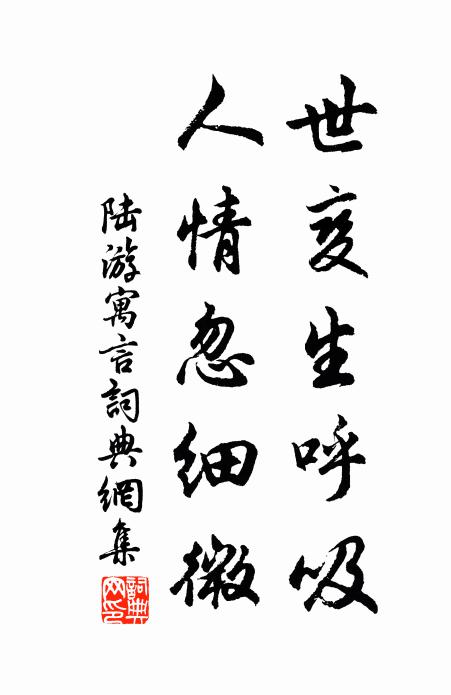 世变生呼吸
人情忽细微
陆游寓言詞典網集
詞典網印